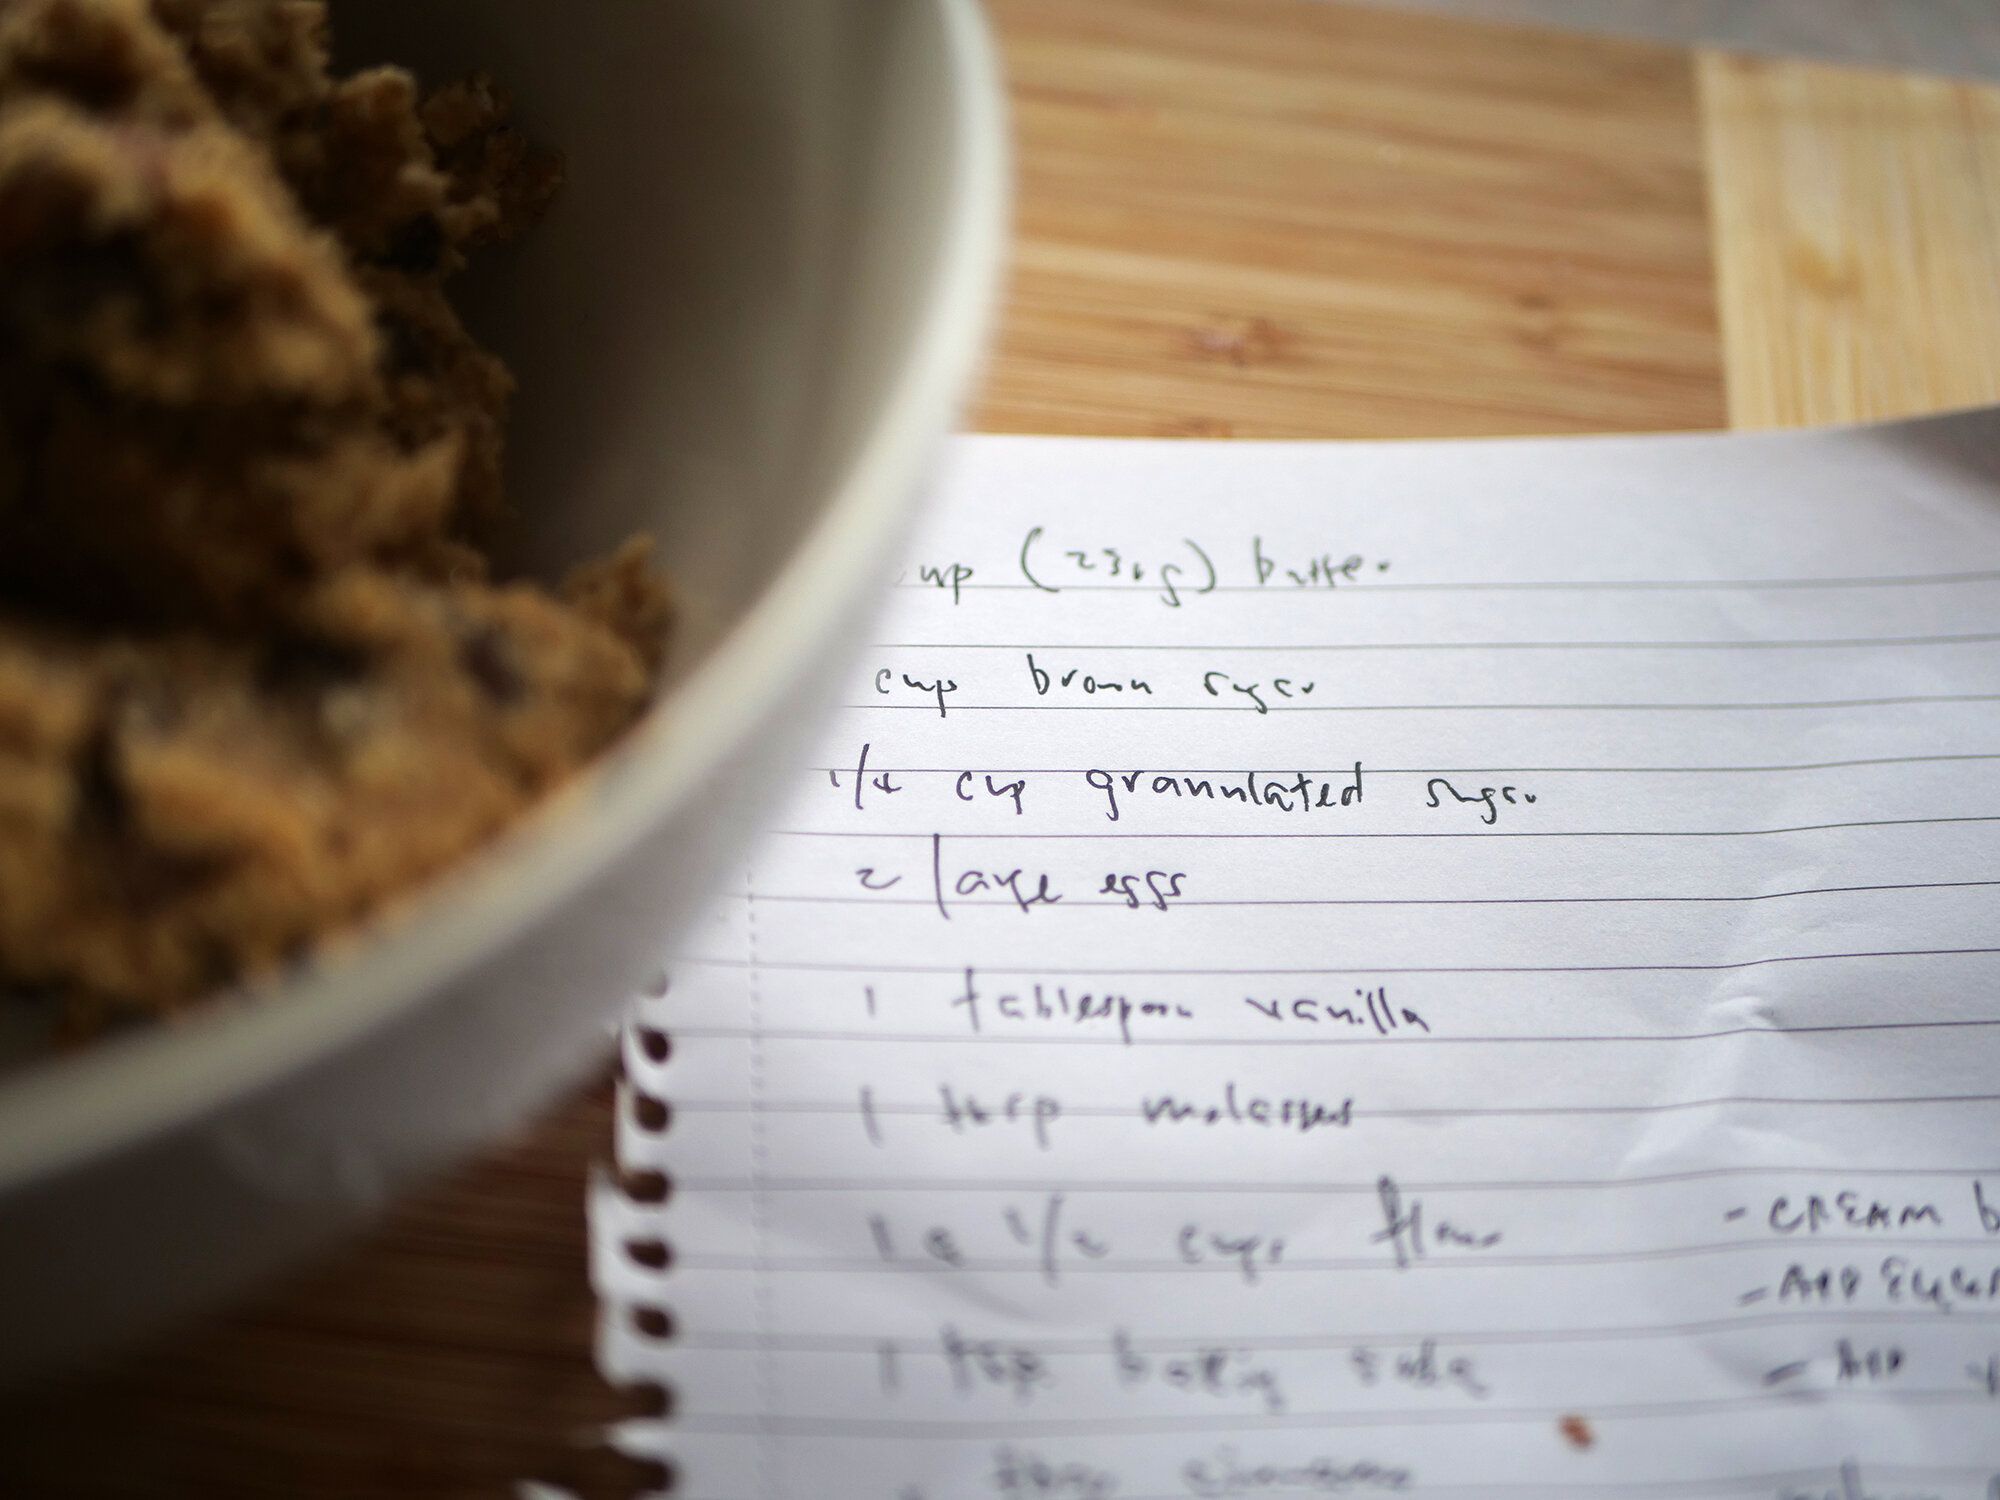 cup (230g) butter
cup brown sugar
1/4 cup granulated sugar
2 large eggs
1 tablespoon vanilla
1 tbsp molasses
1 & 1/2 cups flour
1 tsp baking soda
cinnamon
- CREAM b
- ADD EGGS
- ADD